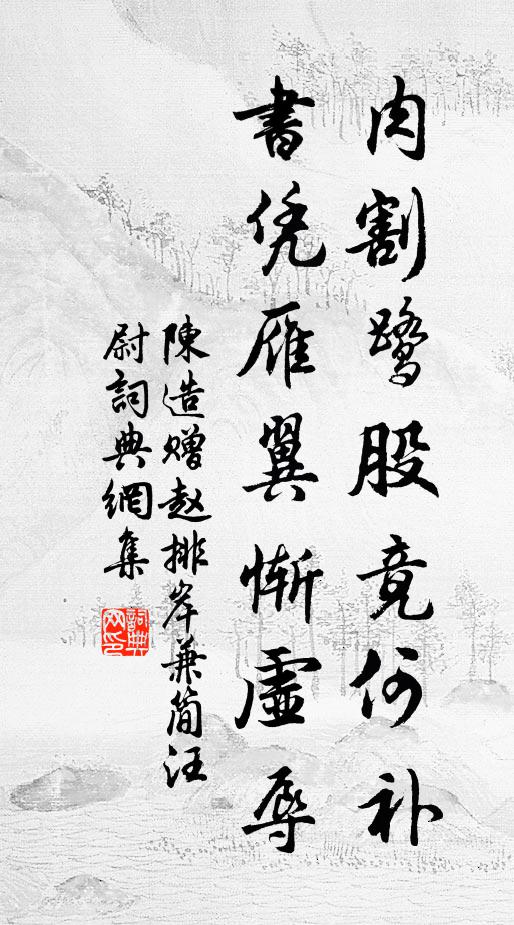 肉割鹭股竟何补
書凭雁翼惭虚辱
陳造赠赵排岸兼简汪
尉詞典網集
詞典
网印